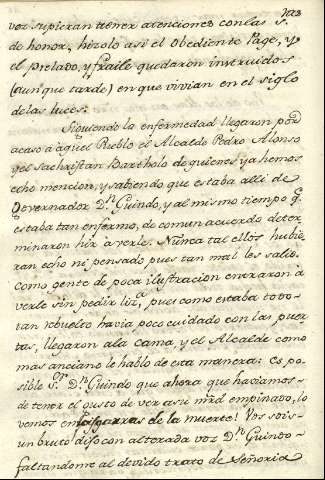 vez supieran tener atenciones con las S.
de honor, hizolo asi el obediente Page, y
el prelado, y fraile quedaron instruidos
(aunque tarde) en que vivian en el siglo
de las luces.
Siguiendo la enfermedad llegaron por
acaso à aquel Pueblo el Alcalde Pedro Alonso
y el sachristan Bartholo de quienes ya hemos
echo mencion, y sabiendo que estaba alli de
Governador D.n Guindo, y al mismo tiempo q.
estaba tan enfermo, de comun acuerdo deter
minaron hir à verle. Nunca tal ellos hubie
ran echo ni pensado pues tan mal les salio.
Como gente de poca ilustracion entraron à
verle sin pedir liz.a, pues como estaba todo
tan rebuelto havia poco cuidado con las puer
tas, llegaron ala cama, y el Alcalde como
mas anciano le hablo de esta manera: es po
sible S.or D.n Guindo que ahora que haciamos
de tener el gusto de ver asu mrd empinado, lo
vemos en las garras de la muerte! Vos sois
un bruto dijo con alterada voz D.n Guindo
faltandome al devido trato de Señoria